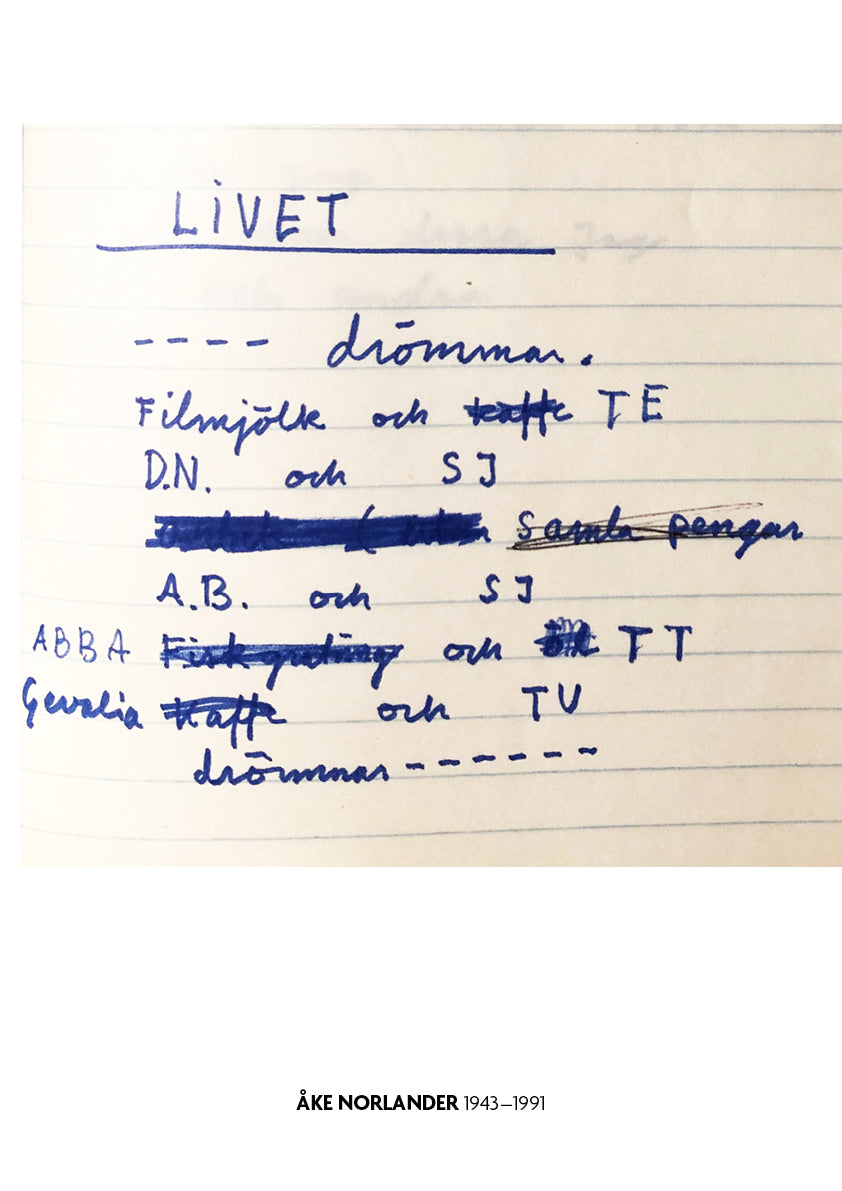 LiVET
---- drömmar.
Filmjölk och kaffe TE
D.N. och SJ
Samla pengar
A.B. och SJ
ABBA Fiskgratäng och öl TT
Gevalia Kaffe och TV
drömmar ------
ÅKE NORLANDER 1943–1991